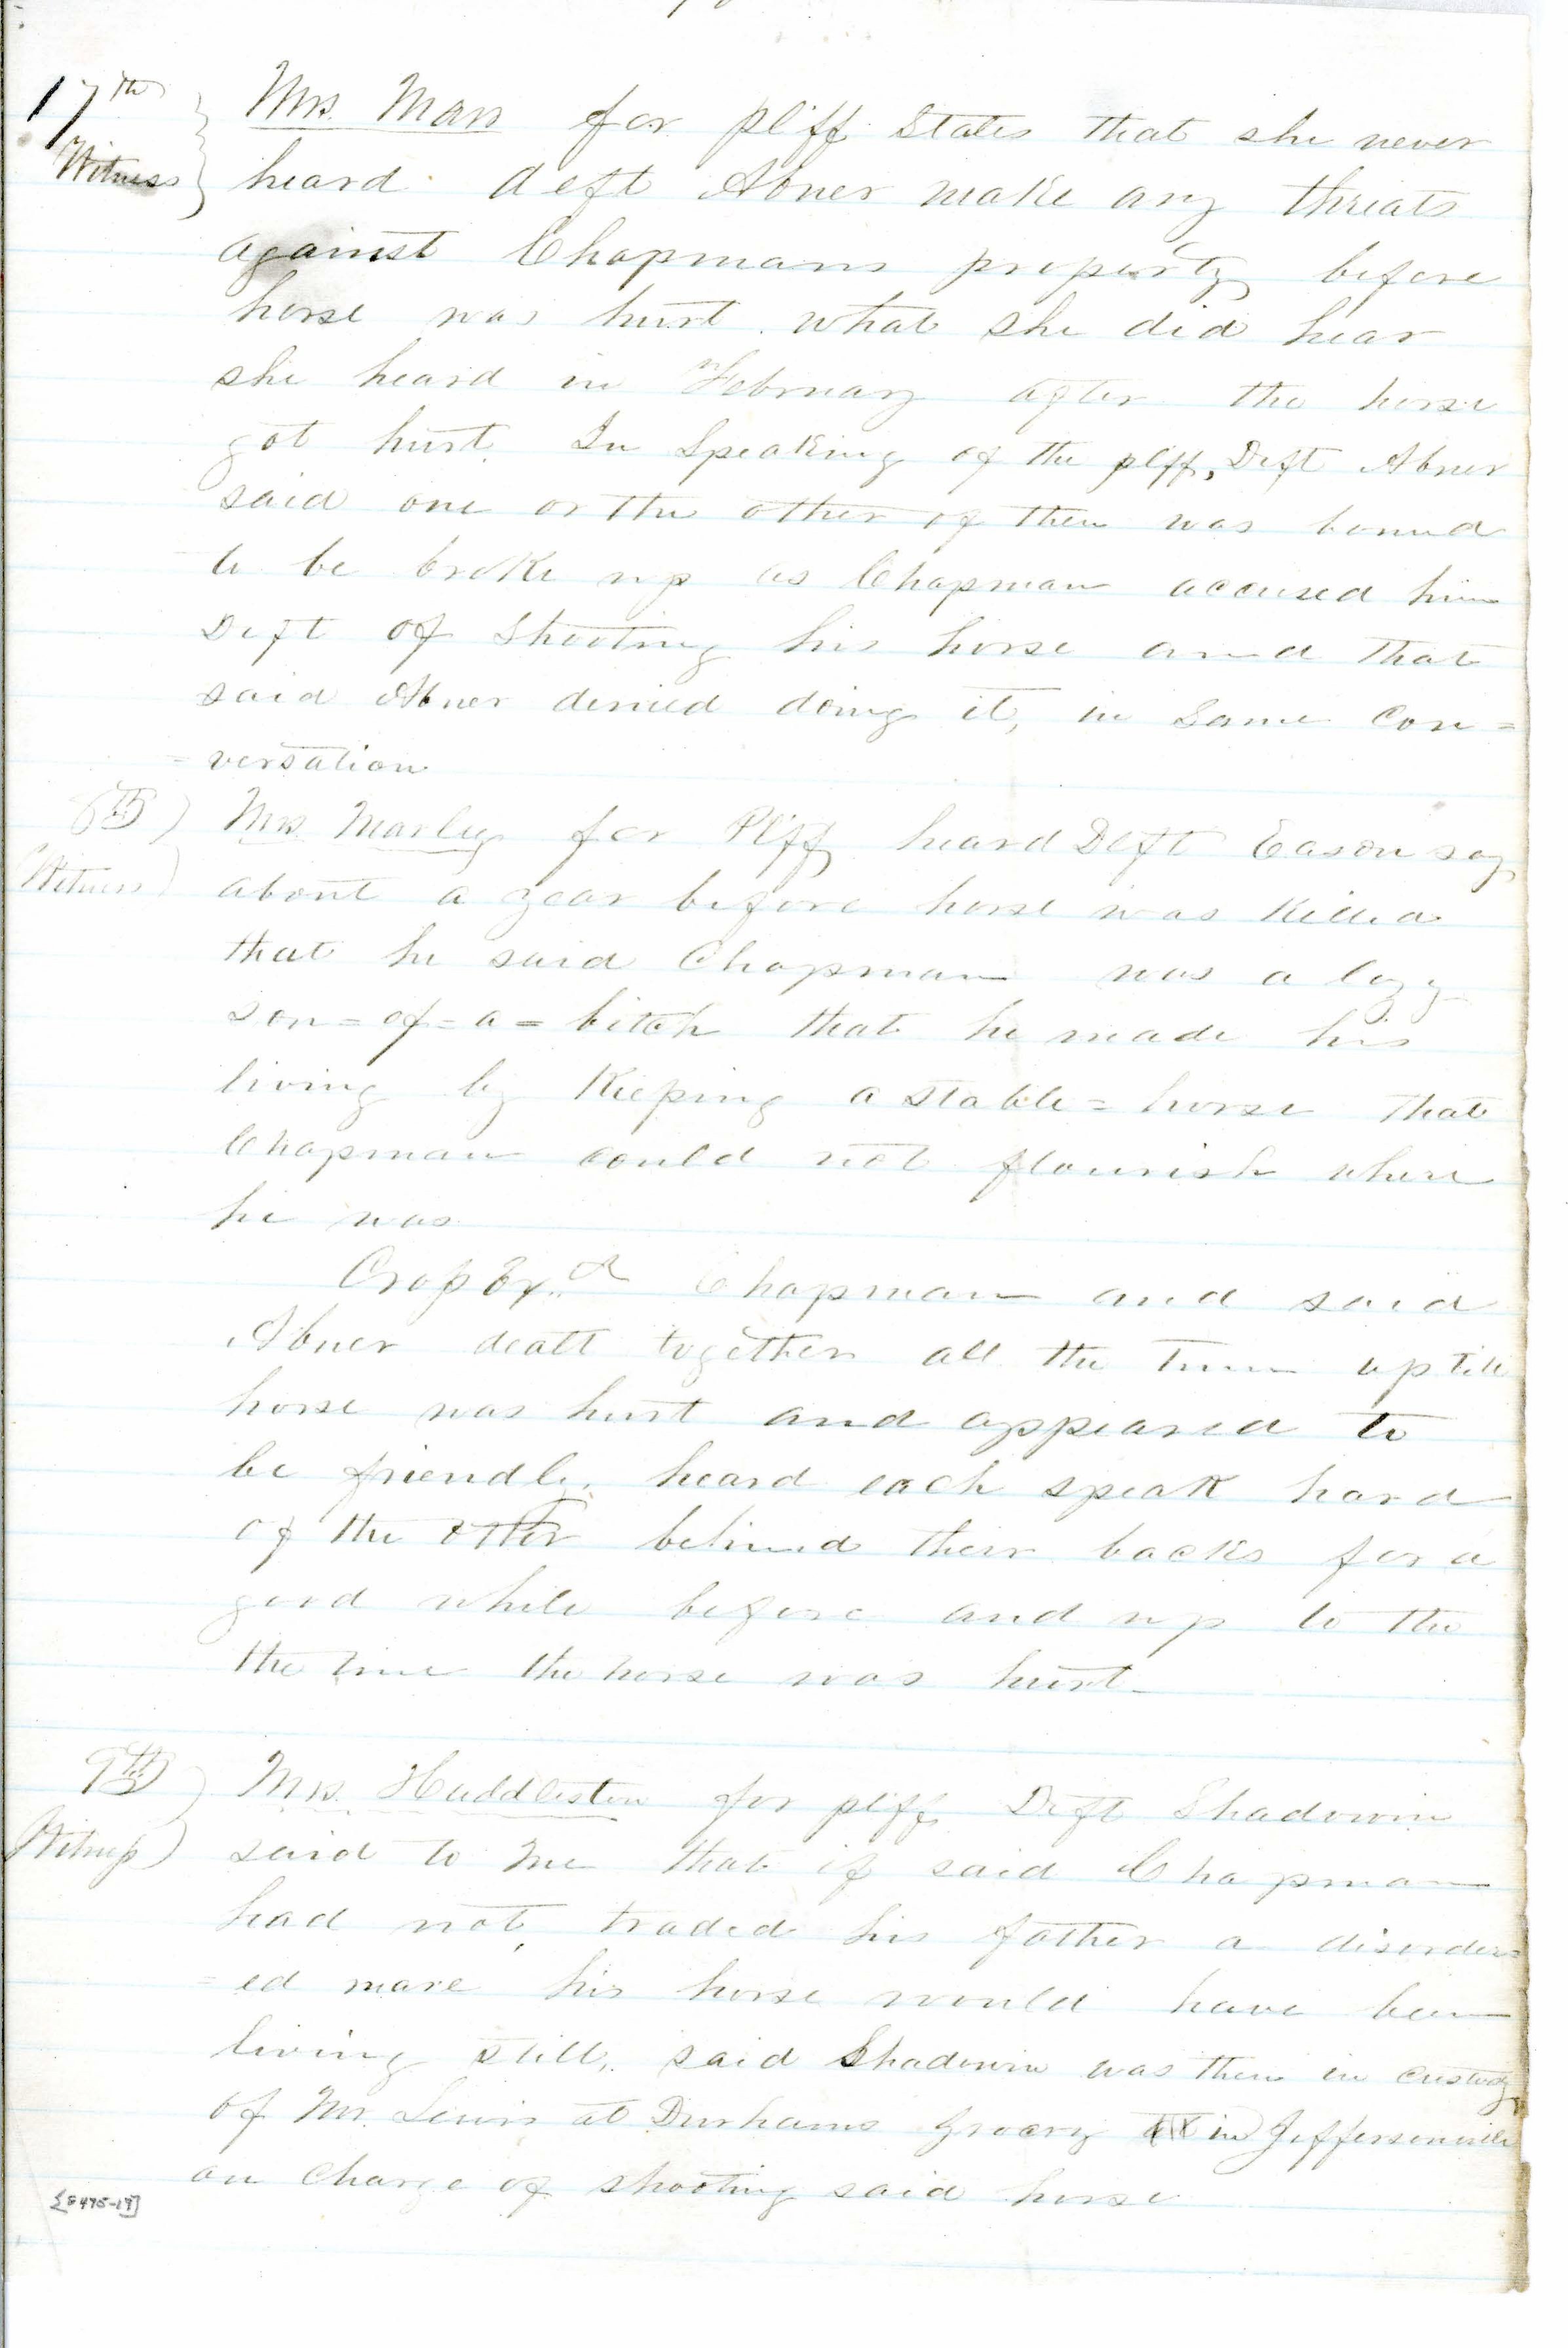 17th Witness } Mrs. Mars for pltff States that she never
heard deft Abner make any threats
against Chapmans property before
horse was hurt. what she did hear
she heard in February after the horse
got hurt. In Speaking of the pltff, Deft Abner
said one or the other of them was bound
to be broke up as Chapman accused him
Deft of Shooting his horse and that
said Abner denied doing it, in Same Con=
=versation
8th Witness ) Mrs. Marley for Pltff heard Deft Eason say
about a year before horse was Killed
that he said Chapman was a lazy
son=of=a=bitch that he made his
living by Keeping a stable=horse that
Chapman could not flourish where
he was
Cross Exd Chapman and said
Abner dealt together all the Time up till
horse was hurt and appeared to
be friendly. heard each speak hard
of the other behind their backs for a
good while before and up to the
the time the horse was hurt_
9th Witness ) Mrs. Huddleston for pltff Deft Shadowin
said to me that if said Chapman
had not, traded his father a disorder=
=ed mare his horse would have been
living still, said Shadowin was then in custody
of Mr. Lewis at Durhams Grocery in Jeffersonville
on Charge of shooting said horse
[8475-17]